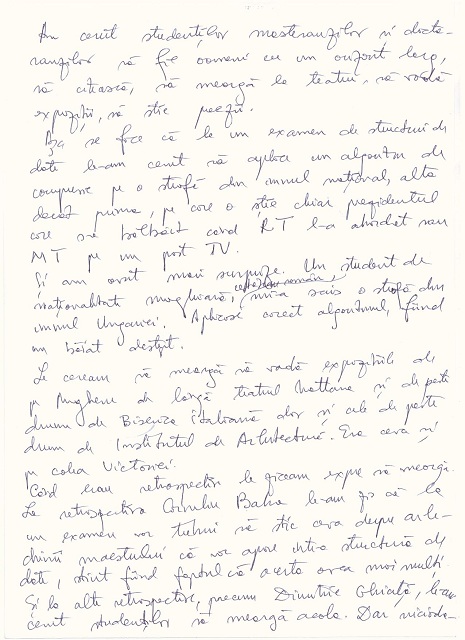 Am cerut studenților masteranzilor și docto-
ranzilor să fie oameni cu un orizont larg,
să citească, să meargă la teatru, să vadă
expoziții, să știe poezii.
Așa se face că la un examen de structuri de
date le-am cerut să aplice un algoritm de
compresie pe o strofă din imnul național, alta
decât prima, pe care o știe chiar președintele
care s-a bâlbâit când R T l-a abordat sau
M T pe un post TV.
Și am avut mari surprize. Un student de
naționalitate maghiară, cetățean român, mi-a scris o strofă din
imnul Ungariei. Aplicase corect algoritmul, fiind
un băiat deștept.
Le ceream să meargă să vadă expozițiile de
pe Pungheni de lângă teatrul Nottara și de peste
drum de Biserica italiană dar și cele de peste
drum de Institutul de Arhitectură. Era ceva și
pe calea Victoriei.
Când erau retrospective le ziceam expres să meargă.
La retrospectiva Corneliu Baba le-am zis că la
un examen vor trebui să știe ceva despre arle-
chinii maestrului că vor apare într-o structură de
date, știut fiind faptul că acesta avea mai mulți.
Și la alte retrospective, precum Dimitrie Ghiață, le-am
cerut studenților să meargă acolo. Dar nicioda-